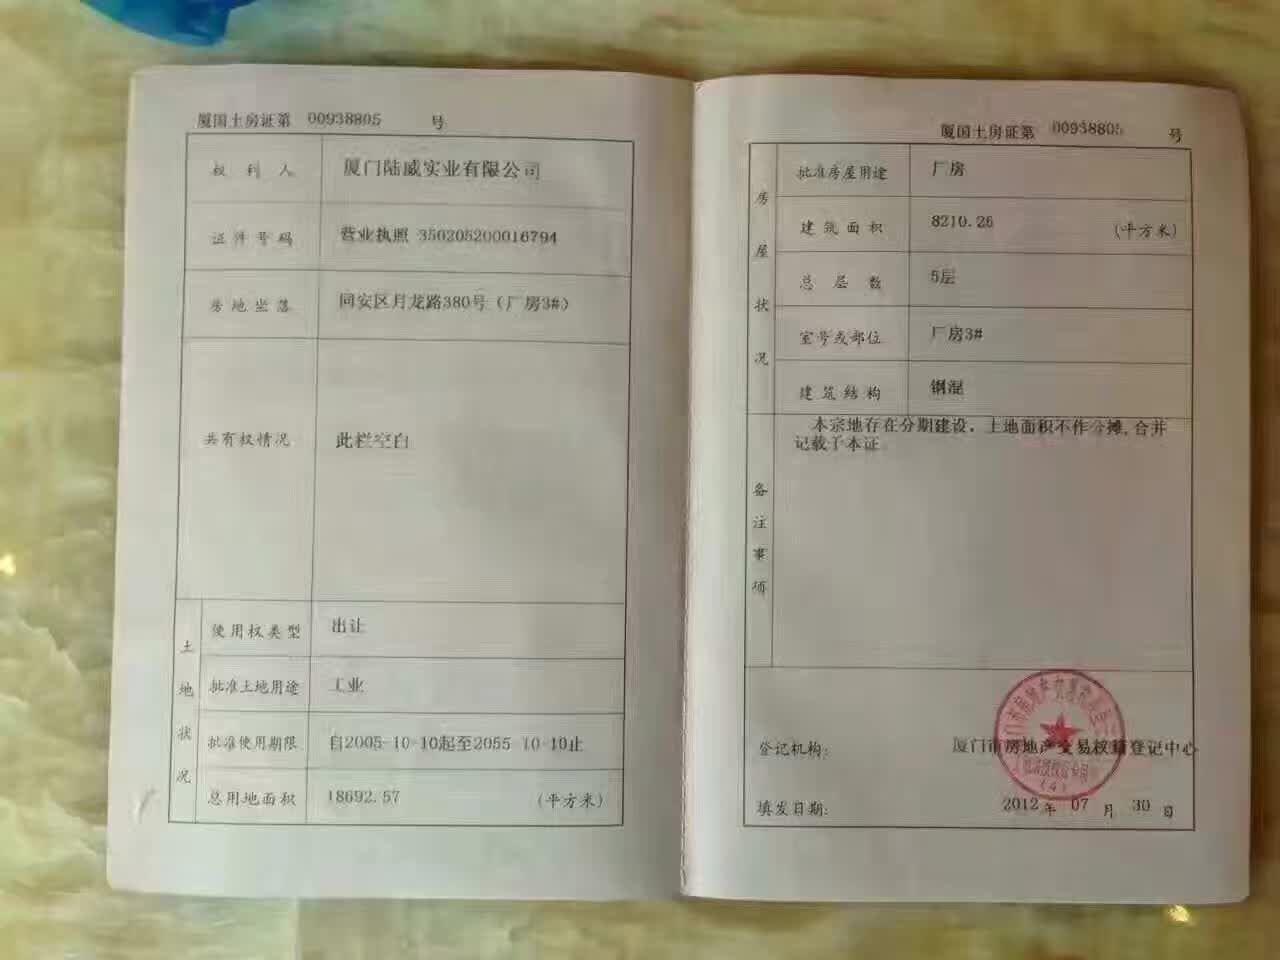 厦国土房证第 00938805 号
权利人 厦门陆威实业有限公司
证件号码 营业执照 350205200016794
房地坐落 同安区月龙路380号（厂房3#）
共有权情况 此栏空白
土地状况
使用权类型 出让
批准土地用途 工业
批准使用期限 自2005-10-10起至2055-10-10止
总用地面积 18692.57 (平方米)
厦国土房证第 00938805 号
房屋状况
批准房屋用途 厂房
建筑面积 8210.26 (平方米)
总层数 5层
室号或部位 厂房3#
建筑结构 钢混
备注事项
本宗地存在分期建设，土地面积不作分摊,合并
记载于本证
登记机构: 厦门市房地产交易权籍登记中心
填发日期: 2012年 07 月 30 日
(4)